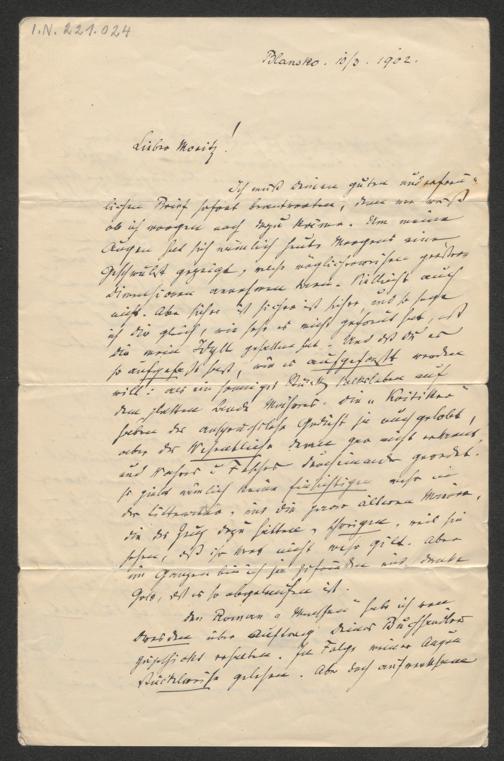 I.N. 221.024
Blansko. 10/3. 1902.
Lieber Moritz!
Ich muß Deinen guten und erfreu-
lichen Brief sofort beantworten, denn wer weiß
ob ich morgen noch dazu käme. Am meine
Augen hat sich nämlich heute Morgens eine
Geschwulst gezeigt, welche möglicherweise größere
Dimensionen annehmen kann. Vielleicht auch
nicht. Aber sicher ist sicher, und so sage
ich Dir gleich, wie sehr es mich gefreut hat, daß
Dir mein Idyll gefallen hat. Und daß Du es
so aufgefaßt hast, wie es aufgefaßt werden
will: als ein sonniges Stück Landleben auf
dem flachen Lande Mährens. Die "Kritiker"
haben das anspruchslose Gedicht ja auch gelobt,
aber das Wesentliche darin gar nicht erkannt,
und Wahres u Falsches durcheinander geredet.
Es gibt nämlich keine Einsichtigen mehr in
der Litteratur; und die paar älteren Männer,
die das Zeug dazu hätten, schweigen, weil sie
sehen, daß ihr Wort nicht mehr gilt. Aber
im Ganzen bin ich ja zufrieden und danke
Gott, daß es so abgelaufen ist.
Den Roman " " habe ich von
Dresden über Auftrag Deines Buchhändlers
zugeschickt erhalten. In Folge meiner Augen
stückweise gelesen. Aber doch aufmerksam